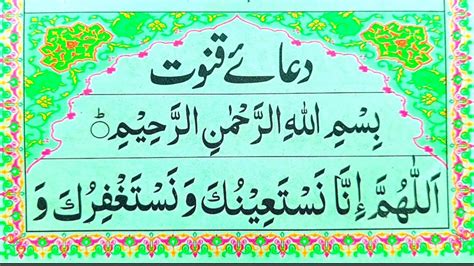 دعائے قنوت
بِسْمِ اللهِ الرَّحْمٰنِ الرَّحِيْمِ ۝ؕ
اَللّٰهُمَّ اِنَّا نَسْتَعِيْنُكَ وَ نَسْتَغْفِرُكَ وَ